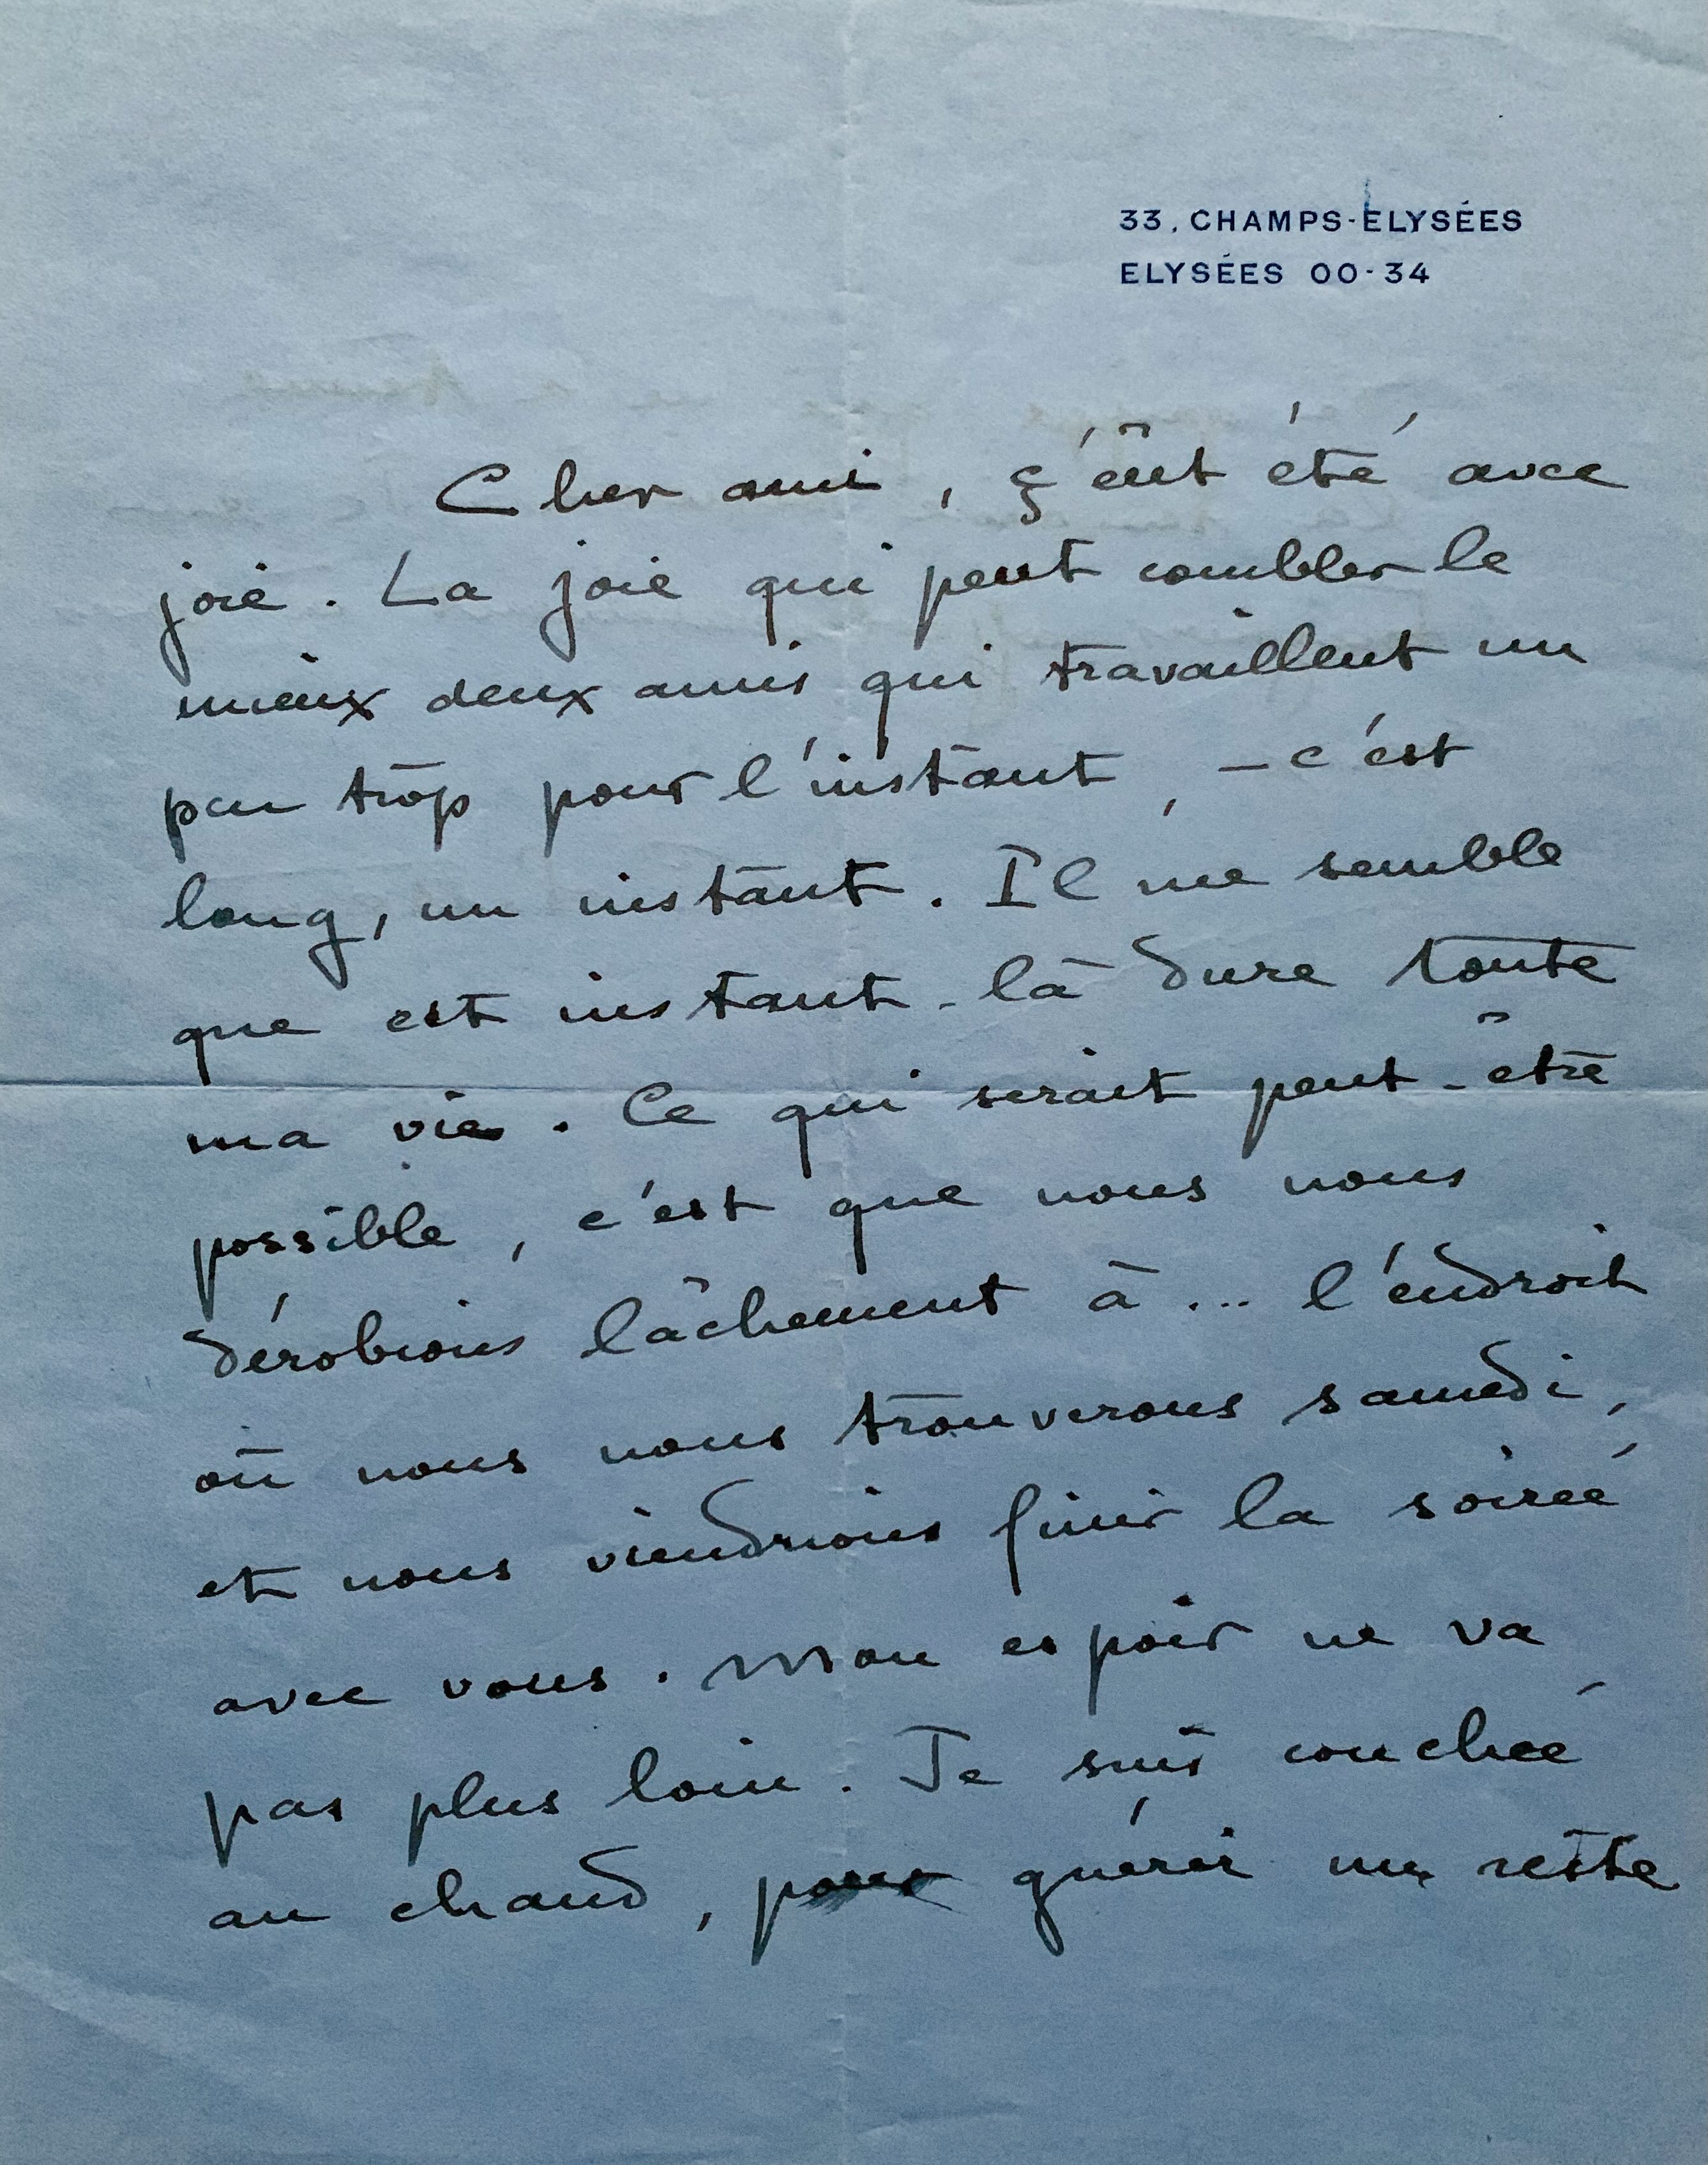 33, CHAMPS-ELYSÉES
ELYSÉES 00-34
Cher ami, ç'eût été avec
joie. La joie qui peut combler le
mieux deux amis qui travaillent un
peu trop pour l'instant, – c'est
long, un instant. Il me semble
que cet instant-là dure toute
ma vie. Ce qui serait peut-être
possible, c'est que nous nous
dérobions lâchement à... l'endroit
où nous nous trouverons samedi,
et nous viendrions finir la soirée
avec vous. Mon espoir ne va
pas plus loin. Je suis couchée
au chaud, pour guérir un reste